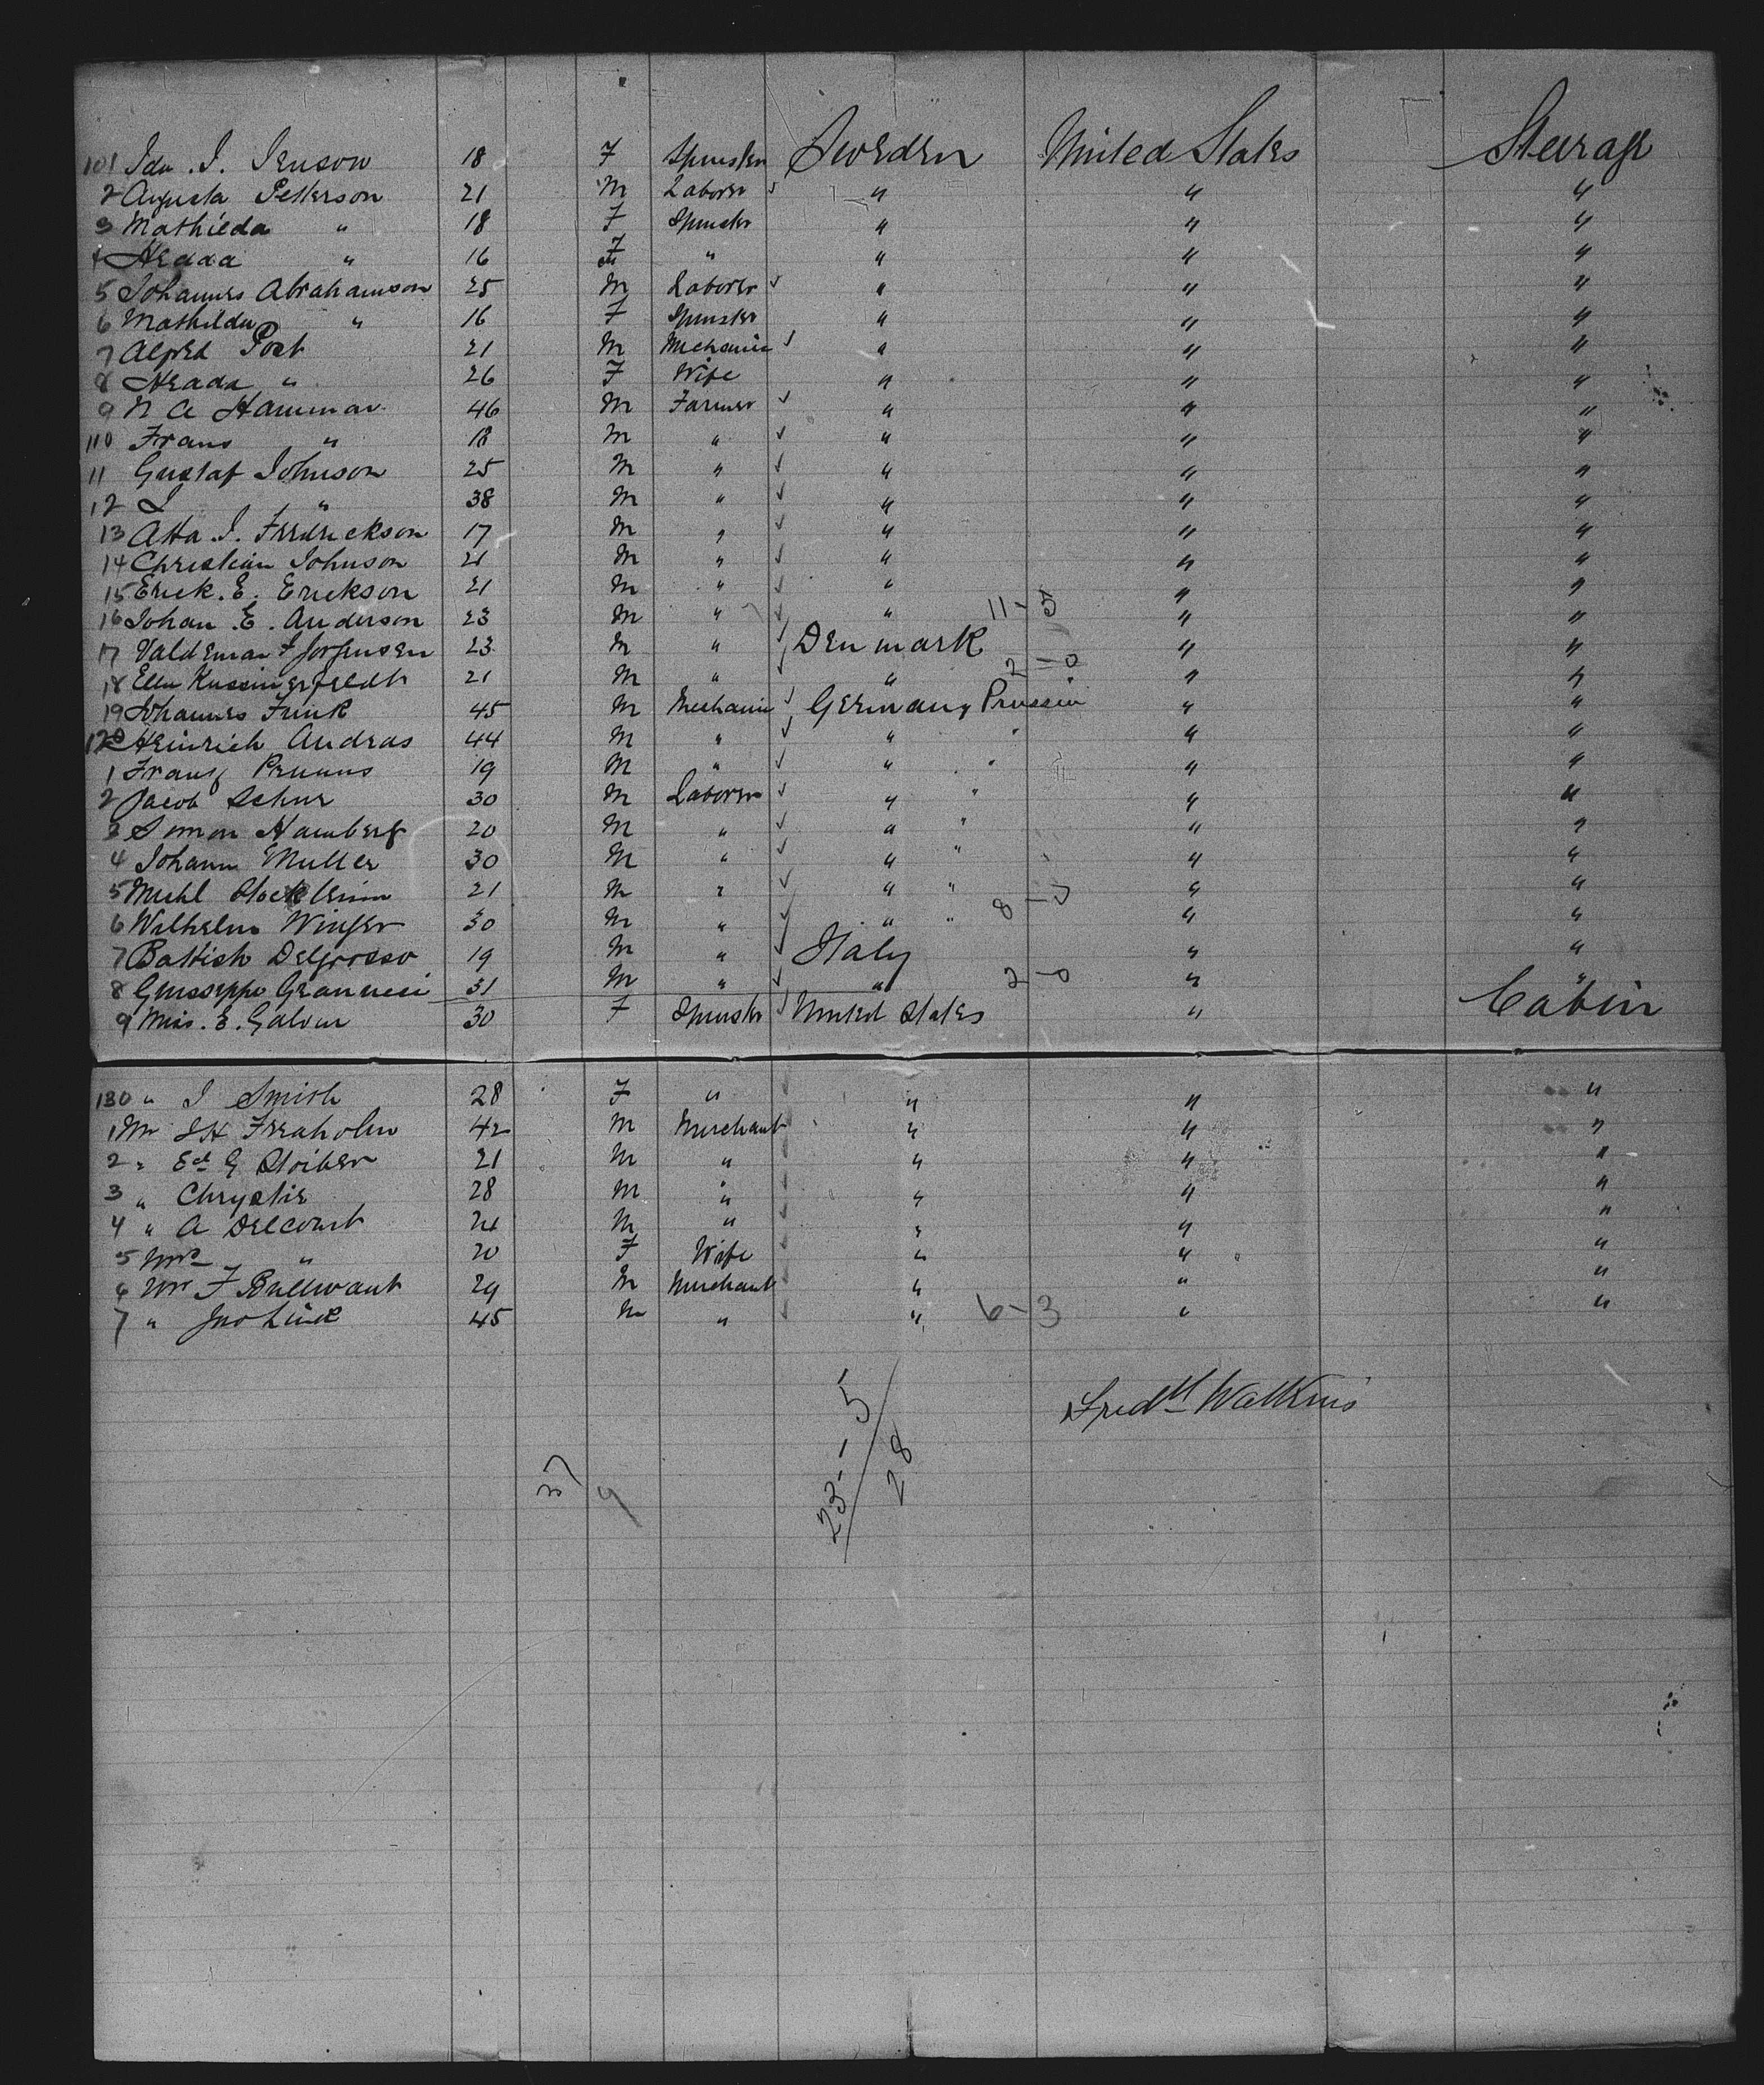 101 Ida . I . Jenson 18 F Spinster Sweden United States Steerage
2 Augusta Petterson 21 M Laborer " " "
3 Mathilda " 18 F Spinster " " "
4 Hedda " 16 F " " " "
5 Johannes Abrahamson 25 M Laborer " " "
6 Mathilda " 16 F Spinster " " "
7 Alfred Post 21 M Mechanic " " "
8 Hedda " 26 F Wife " " "
9 N A Hammar 46 M Farmer " " "
110 Frans " 18 M " " " "
11 Gustaf Johnson 25 M " " " "
12 J " 38 M " " " "
13 Atta . I . Fredrickson 17 M " " " "
14 Christian Johnson 21 M " " " "
15 Erick . E . Erickson 21 M " " " "
16 Johan . E . Anderson 23 M " " 11-5 " "
17 Valdemar F Jorgensen 23 M " Denmark " "
18 21 M " " 2-0 " "
19 Johannes Funk 45 M Mechanic Germany Prussia " "
120 Heinrich Andras 44 M " " " " "
1 Franz 19 M " " " " "
2 Jacob Schur 30 M Laborer " " " "
3 Simon Hamberg 20 M " " " " "
4 Johann Muller 30 M " " " " "
5 Michl 21 M " " " 8-0 " "
6 Wilhelm Winger 30 M " " " " "
7 Battish Delgrosso 19 M " Italy " "
8 Guiseppe 31 M " " 2-0 " "
9 Miss . E . 30 F Spinster United States " Cabin
130 " J Smith 28 F " " " "
1 Mr 42 M Merchant " " "
2 " Ed G Stoiber 21 M " " " "
3 " Chrystie 28 M " " " "
4 " A Delcourt 24 M " " " "
5 Mrs " 20 F Wife " " "
6 Mr F 29 M Merchant " " "
7 " Jno Link 45 M " " 6-3 " "
Fredk Watkins
23-5
28
37
9